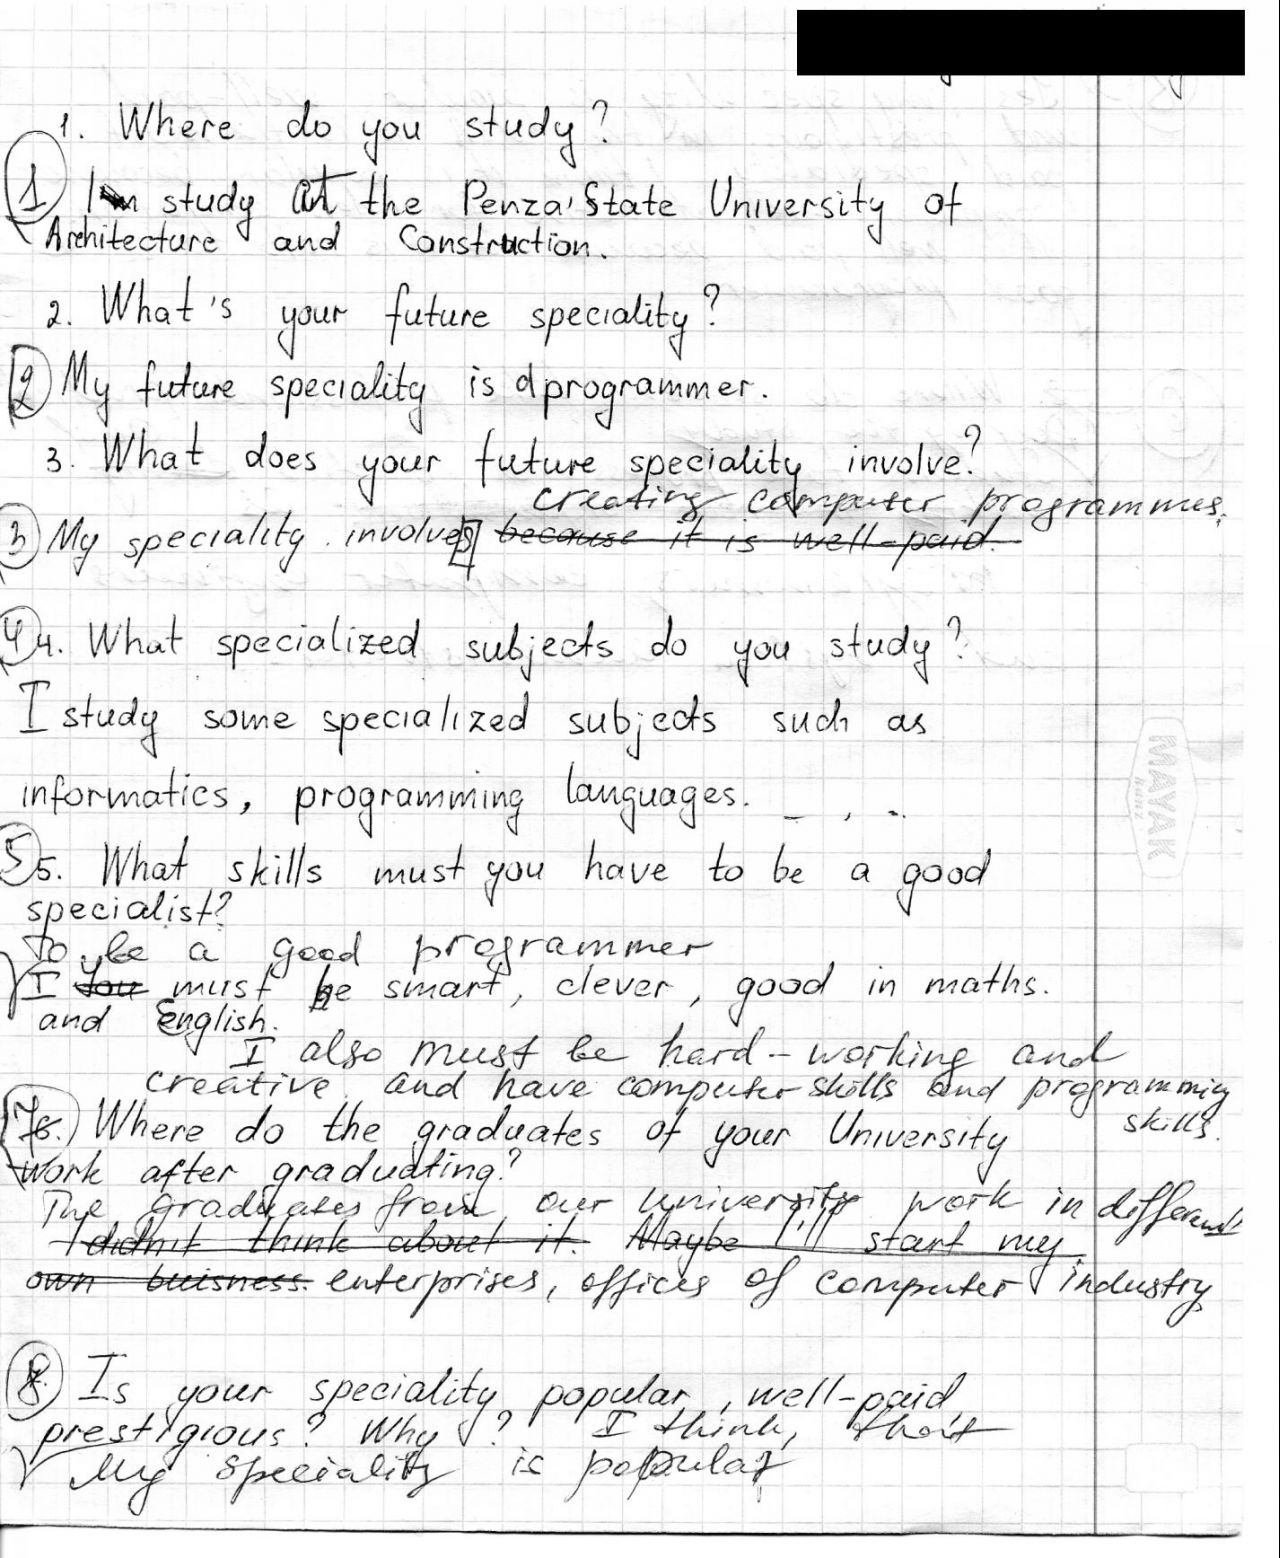 1. Where do you study?
1 I study at the Penza State University of
Architecture and Construction.
2. What's your future speciality?
2 My future speciality is a programmer.
3. What does your future speciality involve?
creating computer programmes.
3 My speciality involves because it is well-paid.
4 4. What specialized subjects do you study?
I study some specialized subjects such as
informatics, programming languages.
5 5. What skills must you have to be a good
specialist?
To be a good programmer
I You must be smart, clever, good in maths.
and English.
I also must be hard-working and
creative and have computer skills and programming
skills.
7 6. Where do the graduates of your University
work after graduating?
The graduates from our university work in different
I didn't think about it. Maybe I'll start my
own buisness. enterprises, offices of computer industry
8. Is your speciality popular, well-paid,
prestigious? Why? I think, that
My speciality is popular
MAYAK